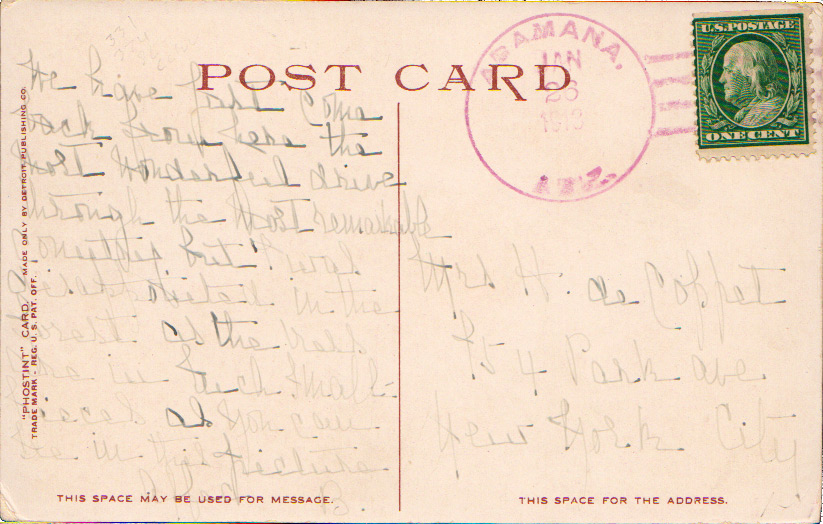 POST CARD
ADAMANA.
JAN
26
ARIZ.
U.S. POSTAGE
ONE CENT
We have just come
back from here the
most wonderful drive
through the most remarkable
in the
forest as the
are in such small
pieces as you can
see in this picture
B.
Mrs H. de Coppet
Park ave
New York City
"PHOSTINT" CARD. MADE ONLY BY DETROIT PUBLISHING CO.
TRADE MARK - REG. U. S. PAT. OFF.
THIS SPACE MAY BE USED FOR MESSAGE.
THIS SPACE FOR THE ADDRESS.